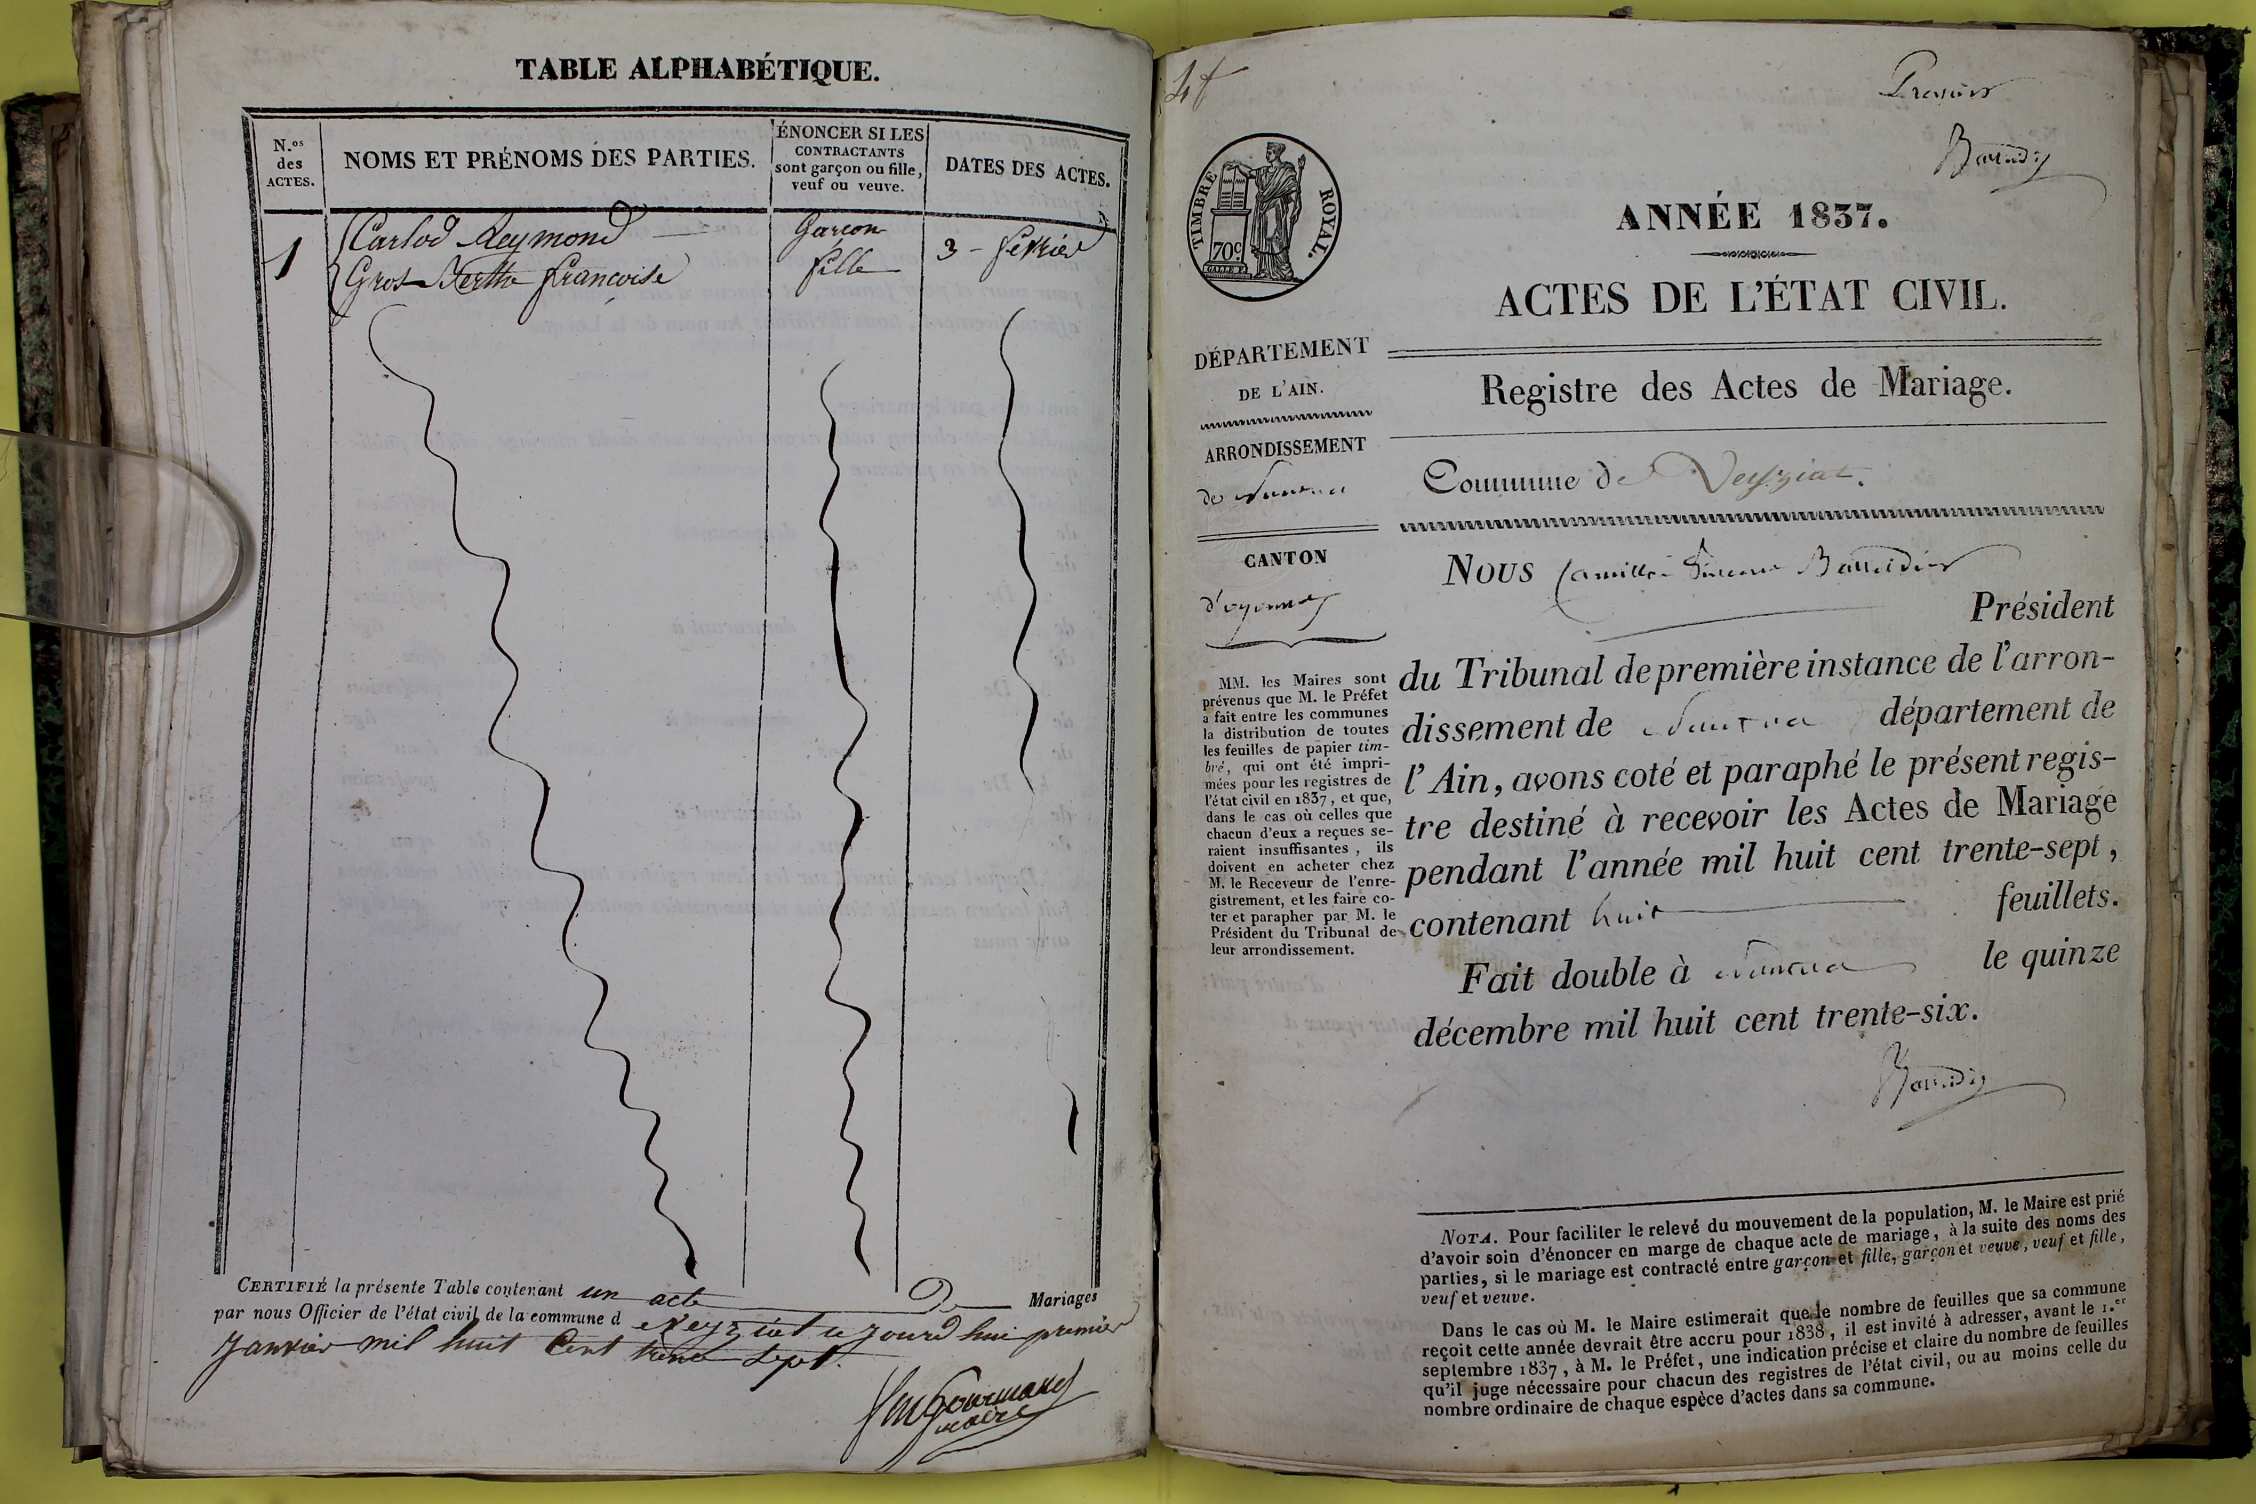 TABLE ALPHABÉTIQUE.
N.os des ACTES.
NOMS ET PRÉNOMS DES PARTIES.
ÉNONCER SI LES CONTRACTANTS sont garçon ou fille, veuf ou veuve.
DATES DES ACTES.
1
Carlod Reymond
Garçon
3 - février
Gros Berthe françoise
fille
CERTIFIÉ la présente Table contenant un acte De Mariages
par nous Officier de l'état civil de la commune d e Veyziat ce jourd'hui premier
Janvier mil huit Cent trente sept.
Gourmand
maire
Premier
ANNÉE 1837.
TIMBRE ROYAL.
70c
ACTES DE L'ÉTAT CIVIL.
DÉPARTEMENT
DE L'AIN.
Registre des Actes de Mariage.
ARRONDISSEMENT
de Nantua
Commune de Veyziat.
CANTON
d'oyonnax
MM. les Maires sont
prévenus que M. le Préfet
a fait entre les communes
la distribution de toutes
les feuilles de papier tim-
bré, qui ont été impri-
mées pour les registres de
l'état civil en 1837, et que,
dans le cas où celles que
chacun d'eux a reçues se-
raient insuffisantes, ils
doivent en acheter chez
M. le Receveur de l'enre-
gistrement, et les faire co-
ter et parapher par M. le
Président du Tribunal de
leur arrondissement.
NOUS Camille
Président
du Tribunal de première instance de l'arron-
dissement de Nantua département de
l'Ain, avons coté et paraphé le présent regis-
tre destiné à recevoir les Actes de Mariage
pendant l'année mil huit cent trente-sept,
contenant huit feuillets.
Fait double à Nantua le quinze
décembre mil huit cent trente-six.
NOTA. Pour faciliter le relevé du mouvement de la population, M. le Maire est prié
d'avoir soin d'énoncer en marge de chaque acte de mariage, à la suite des noms des
parties, si le mariage est contracté entre garçon et fille, garçon et veuve, veuf et fille,
veuf et veuve.
Dans le cas où M. le Maire estimerait que le nombre de feuilles que sa commune
reçoit cette année devrait être accru pour 1838, il est invité à adresser, avant le 1.er
septembre 1837, à M. le Préfet, une indication précise et claire du nombre de feuilles
qu'il juge nécessaire pour chacun des registres de l'état civil, ou au moins celle du
nombre ordinaire de chaque espèce d'actes dans sa commune.